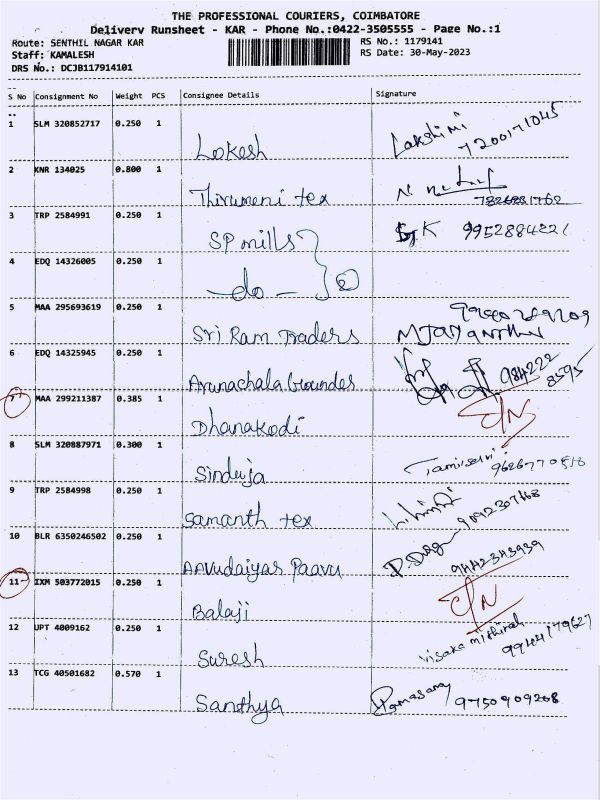 THE PROFESSIONAL COURIERS, COIMBATORE
Delivery Runsheet - KAR - Phone No.:0422-3505555 - Page No.:1
Route: SENTHIL NAGAR KAR RS No.: 1179141
Staff: KAMALESH RS Date: 30-May-2023
DRS No.: DCJB117914101
S No Consignment No Weight PCS Consignee Details Signature
1 SLM 320852717 0.250 1 Lokesh Lakshmi 7200171045
2 KNR 134025 0.800 1 Thirumeni tex
3 TRP 2584991 0.250 1 SP mills GK 9952884221
4 EDQ 14326005 0.250 1 - do - 2
5 MAA 295693619 0.250 1 Sri Ram Traders
6 EDQ 14325945 0.250 1 Arunachala Gounder 984222 8595
7 MAA 299211387 0.385 1 Dhanakodi C/N
8 SLM 320887971 0.300 1 Sinduja Tamilselvi
9 TRP 2584998 0.250 1 Samanth tex
10 BLR 6350246502 0.250 1 Aavudaiyar Paavu 9442343939
11 IXM 503772015 0.250 1 Balaji C/N
12 UPT 4009162 0.250 1 Suresh 9944179627
13 TCG 40501682 0.570 1 Santhya Ramasamy 9750909208